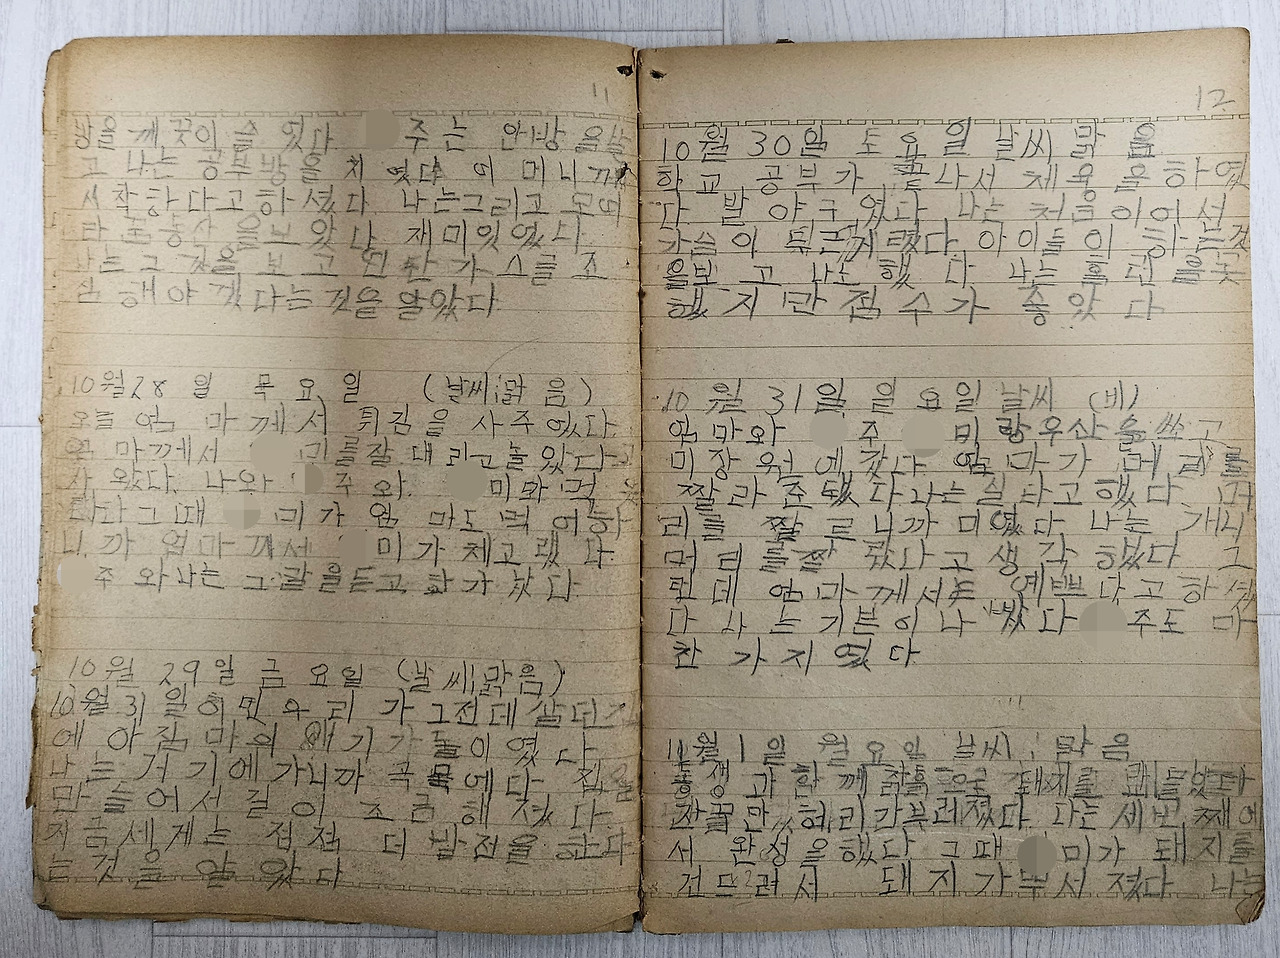 11
방을 깨끗이 쓸 었다. 주는 안방을 쓸
고 나는 공부방을 치 였다 어 머니께
서 착하다고 하 셨다. 나는그리고 모여
라 꿈동산 을보 았 다. 재미있 었 다.
나는 그 것을 보 고 연 탄 가 스를 조
심 해야 겠 다는것을 알았다.
10월28 일 목 요 일 (날씨;맑 음)
오늘 엄 마 께서 튀김 을 사 주 었다.
엄 마께서 미를잘 데 리고놀 았 다고
사 왔다. 나와 주 와. 미와 먹 을
려다 그 때 미 가 엄 마도 먹 어하
니. 까 엄마 께서 미 가 체고 랬 다.
주 와 나는 그 말 을듣고 화 가 났 다.
10월 29일 금 요 일 (날 씨;맑음)
10.월 31 일 이면 우 리 가 그전데 살던
에 아줌 마의 얘기 가 돌이 였 다.
나 는 거 기에 가니까 골목에다 집을
만 들어서 길 이 조 금 해 졌 다.
지 금 세 계는 점점 더 발 전을 한다
는 것 을 알 았 다
12
10월 30일 토 요 일 날 씨 맑 음
학 교 공 부가 끝나서 체육 을 하 였
다 발 야 구 였다 나는 처음 이어 서
가슴이 두근거렸다. 아이들 이 하는것
을보 고 나도 했 다 나는 홈런을 못
했 지 만 점 수 가 좋 았 다
10 월 31일 일 요일 날씨 (비)
엄 마와 주 미 랑우산을 쓰 고
미 장 원 에 갔 다 엄 마가 머 리를
짤 라 준 댔 다 나는 싫 다고 했 다 머
리를 짤 르니까 미 였다 나는 개니
머 리 를짤 랐다 고 생 각 했다 그
런데 엄 마 께서는 예쁘다고하 셨
다 나 는 기분 이 나 빴 다 주도 마
찬 가 지 였 다
11월 1 일 월 요 일 날 씨 ; 맑 음
동생 과 함 께 찰흙으로 돼지를 만들었다
자꾸만 허리가부러졌다. 나는 세번 째에
서 완성을했다 그때 미가 돼 지를
건 드려서 돼 지 가 부서 졌다 나는